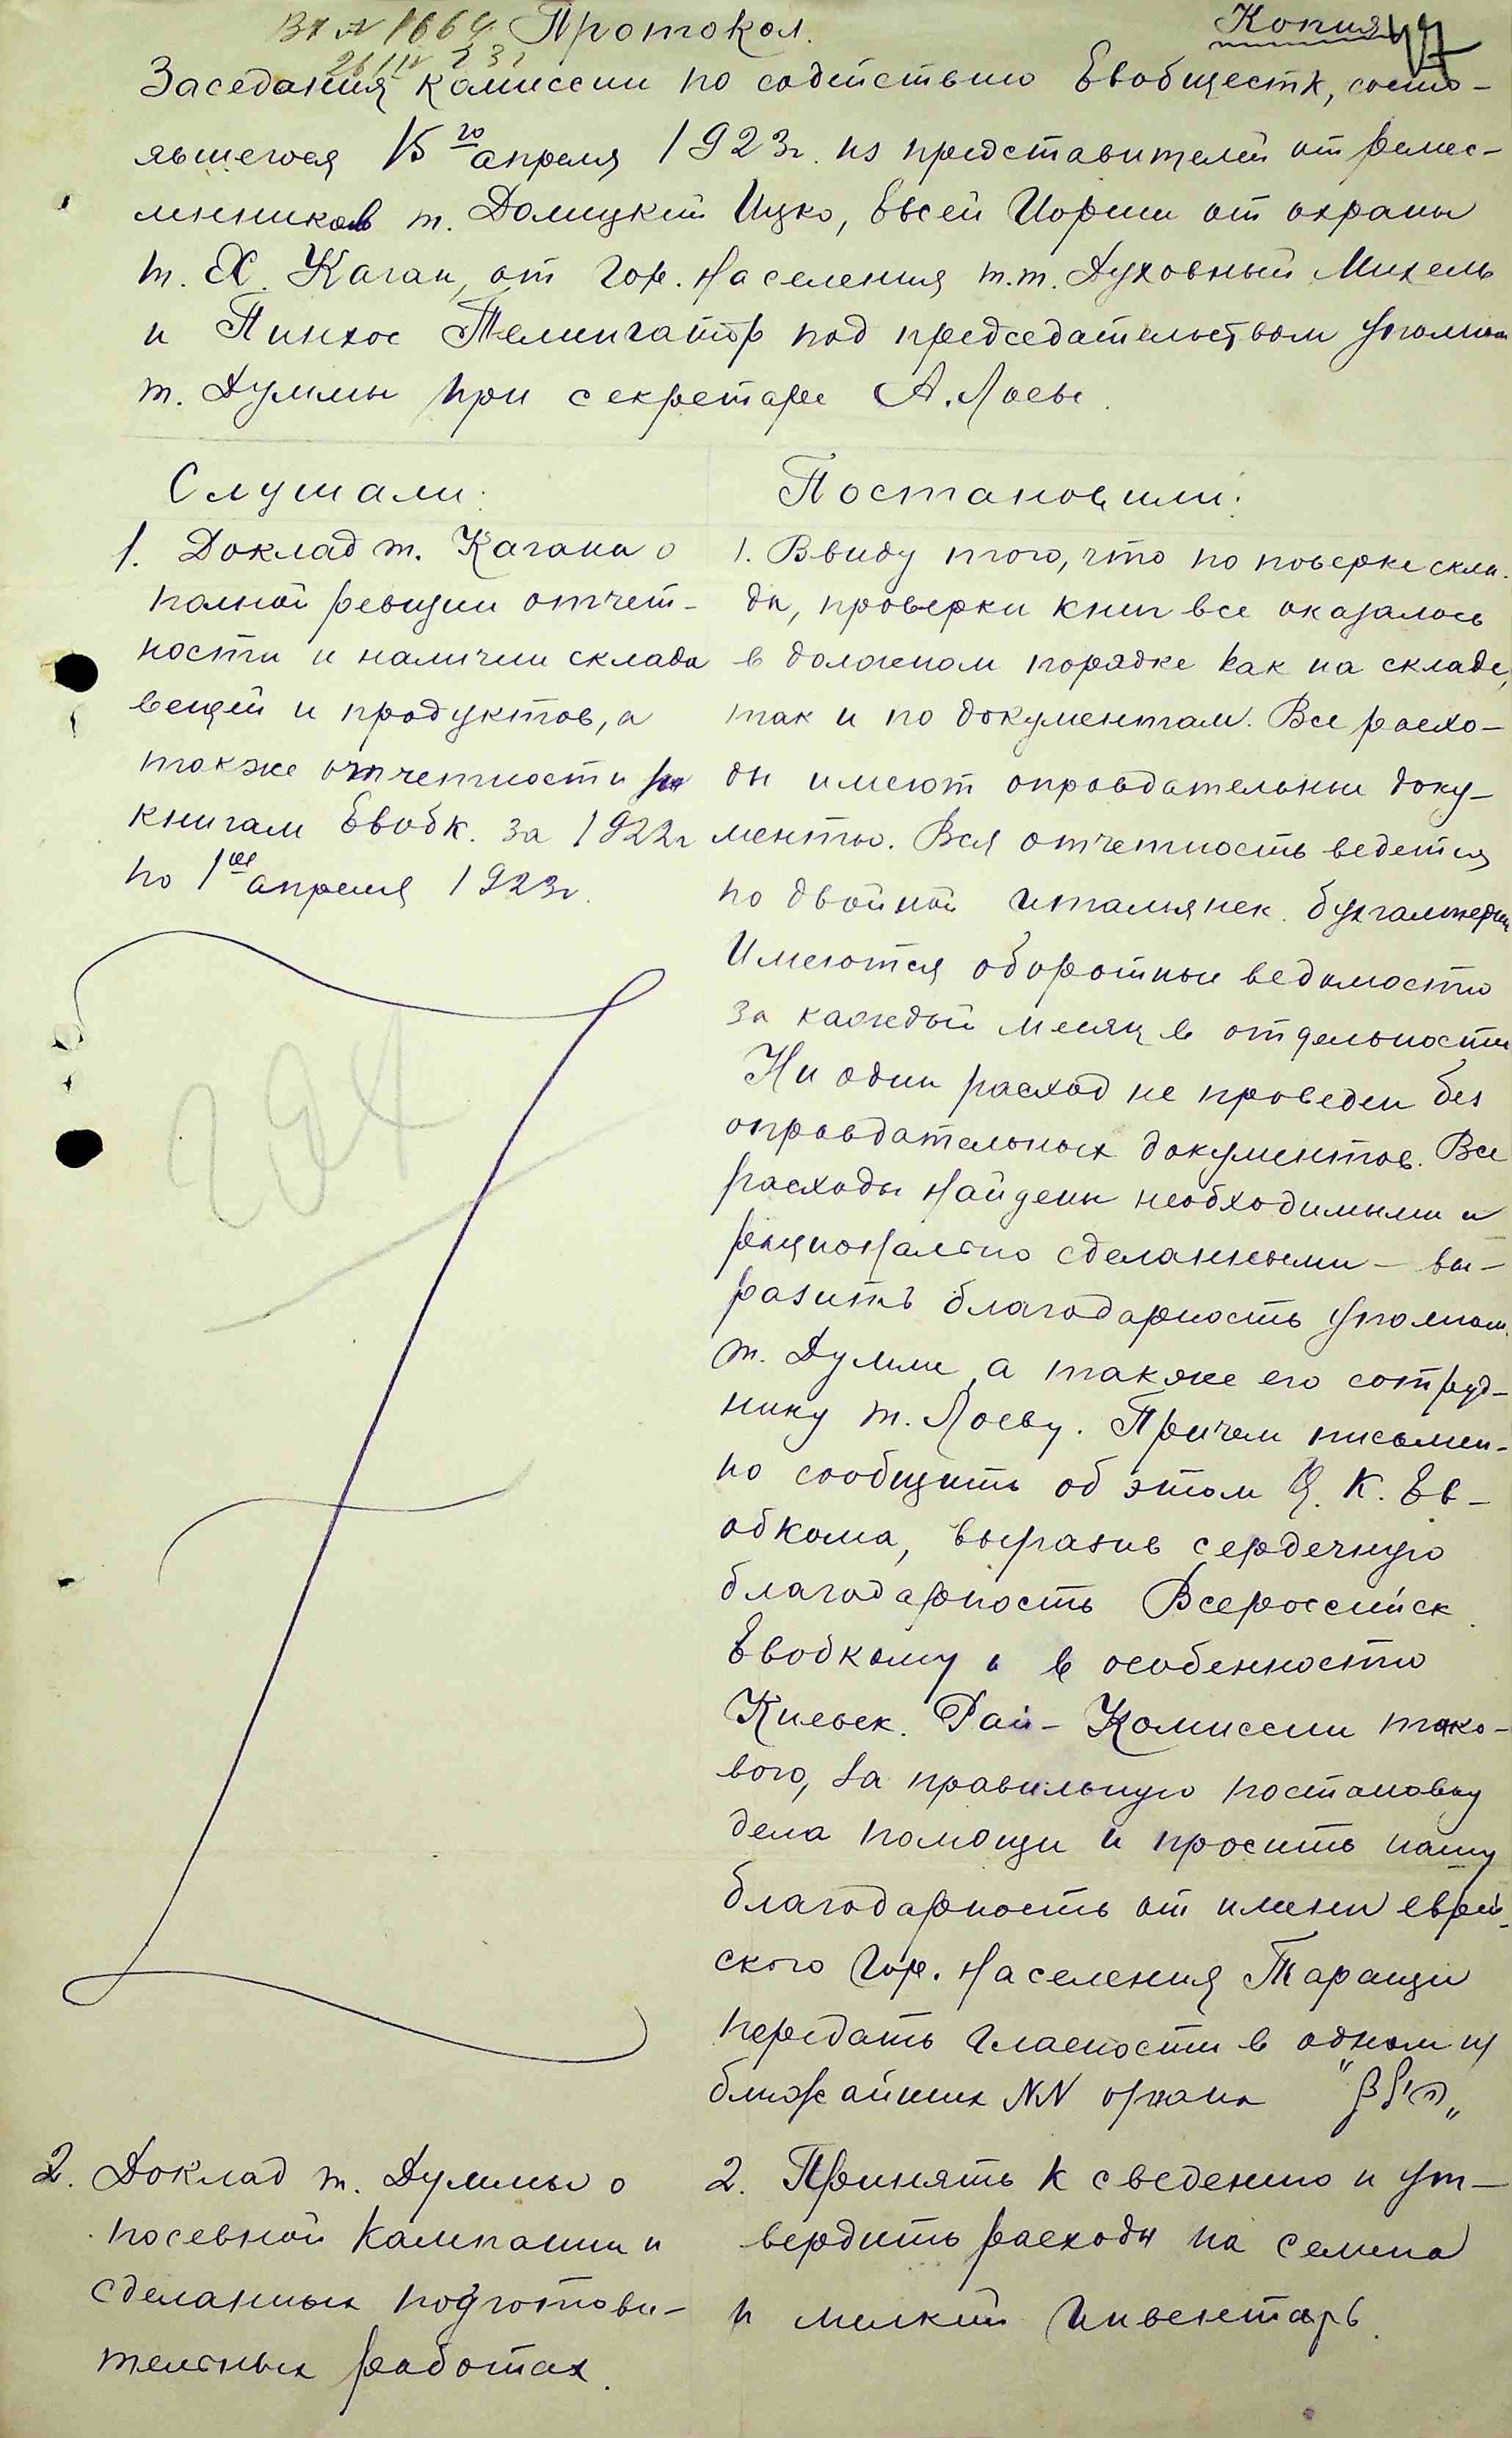 Вх № 1664
26/IV 23г
Протокол.
Копия
47
Заседания комиссии по содействию Евобществк, состо-
явшегося 15го апреля 1923г. из представителей от ремес-
ленников т. Долицкий Ицко, Евсей Иорыш от охраны
т. Х. Каган, от Гор. Населения т.т. Духовный Михель
и Пинхос Темингатор под председательством уполном
т. Думмы при секретаре А. Лоеве.
Слушали:
1. Доклад т. Кагана о
полной ревизии отчет-
ности и наличии склада
вещей и продуктов, а
также отчетности по
книгам Евобк. за 1922г
по 1ое апреля 1923г.
294
Постановили:
1. Ввиду того, что по поверке скла-
да, проверки книг все оказалось
в должном порядке как на складе,
так и по документам. Все расхо-
ды имеют оправдательные доку-
менты. Вся отчетность ведется
по двойной итальянск. бухгалтерии
Имеются оборотные ведомости
за каждый месяц в отдельности
Ни один расход не проведен без
оправдательных документов. Все
расходы найдены необходимыми и
рационально сделанными – вы-
разить благодарность уполном.
т. Думме, а также его сотруд-
нику т. Лоеву. Причем письмен-
но сообщить об этом Ц. К. Ев-
обкома, выразив сердечную
благодарность Всероссийск.
Евобкому и в особенности
Киевск. Рай-Комиссии тако-
вого, за правильную постановку
дела помощи и просить нашу
благодарность от имени еврей-
ского Гор. Населения Таращи
передать гласности в одном из
ближайших NN органа
2. Доклад т. Думмы о
посевной кампании и
сделанных подготови-
тельных работах.
2. Принять к сведению и ут-
вердить расходы на семена
и мелкий инвентарь.